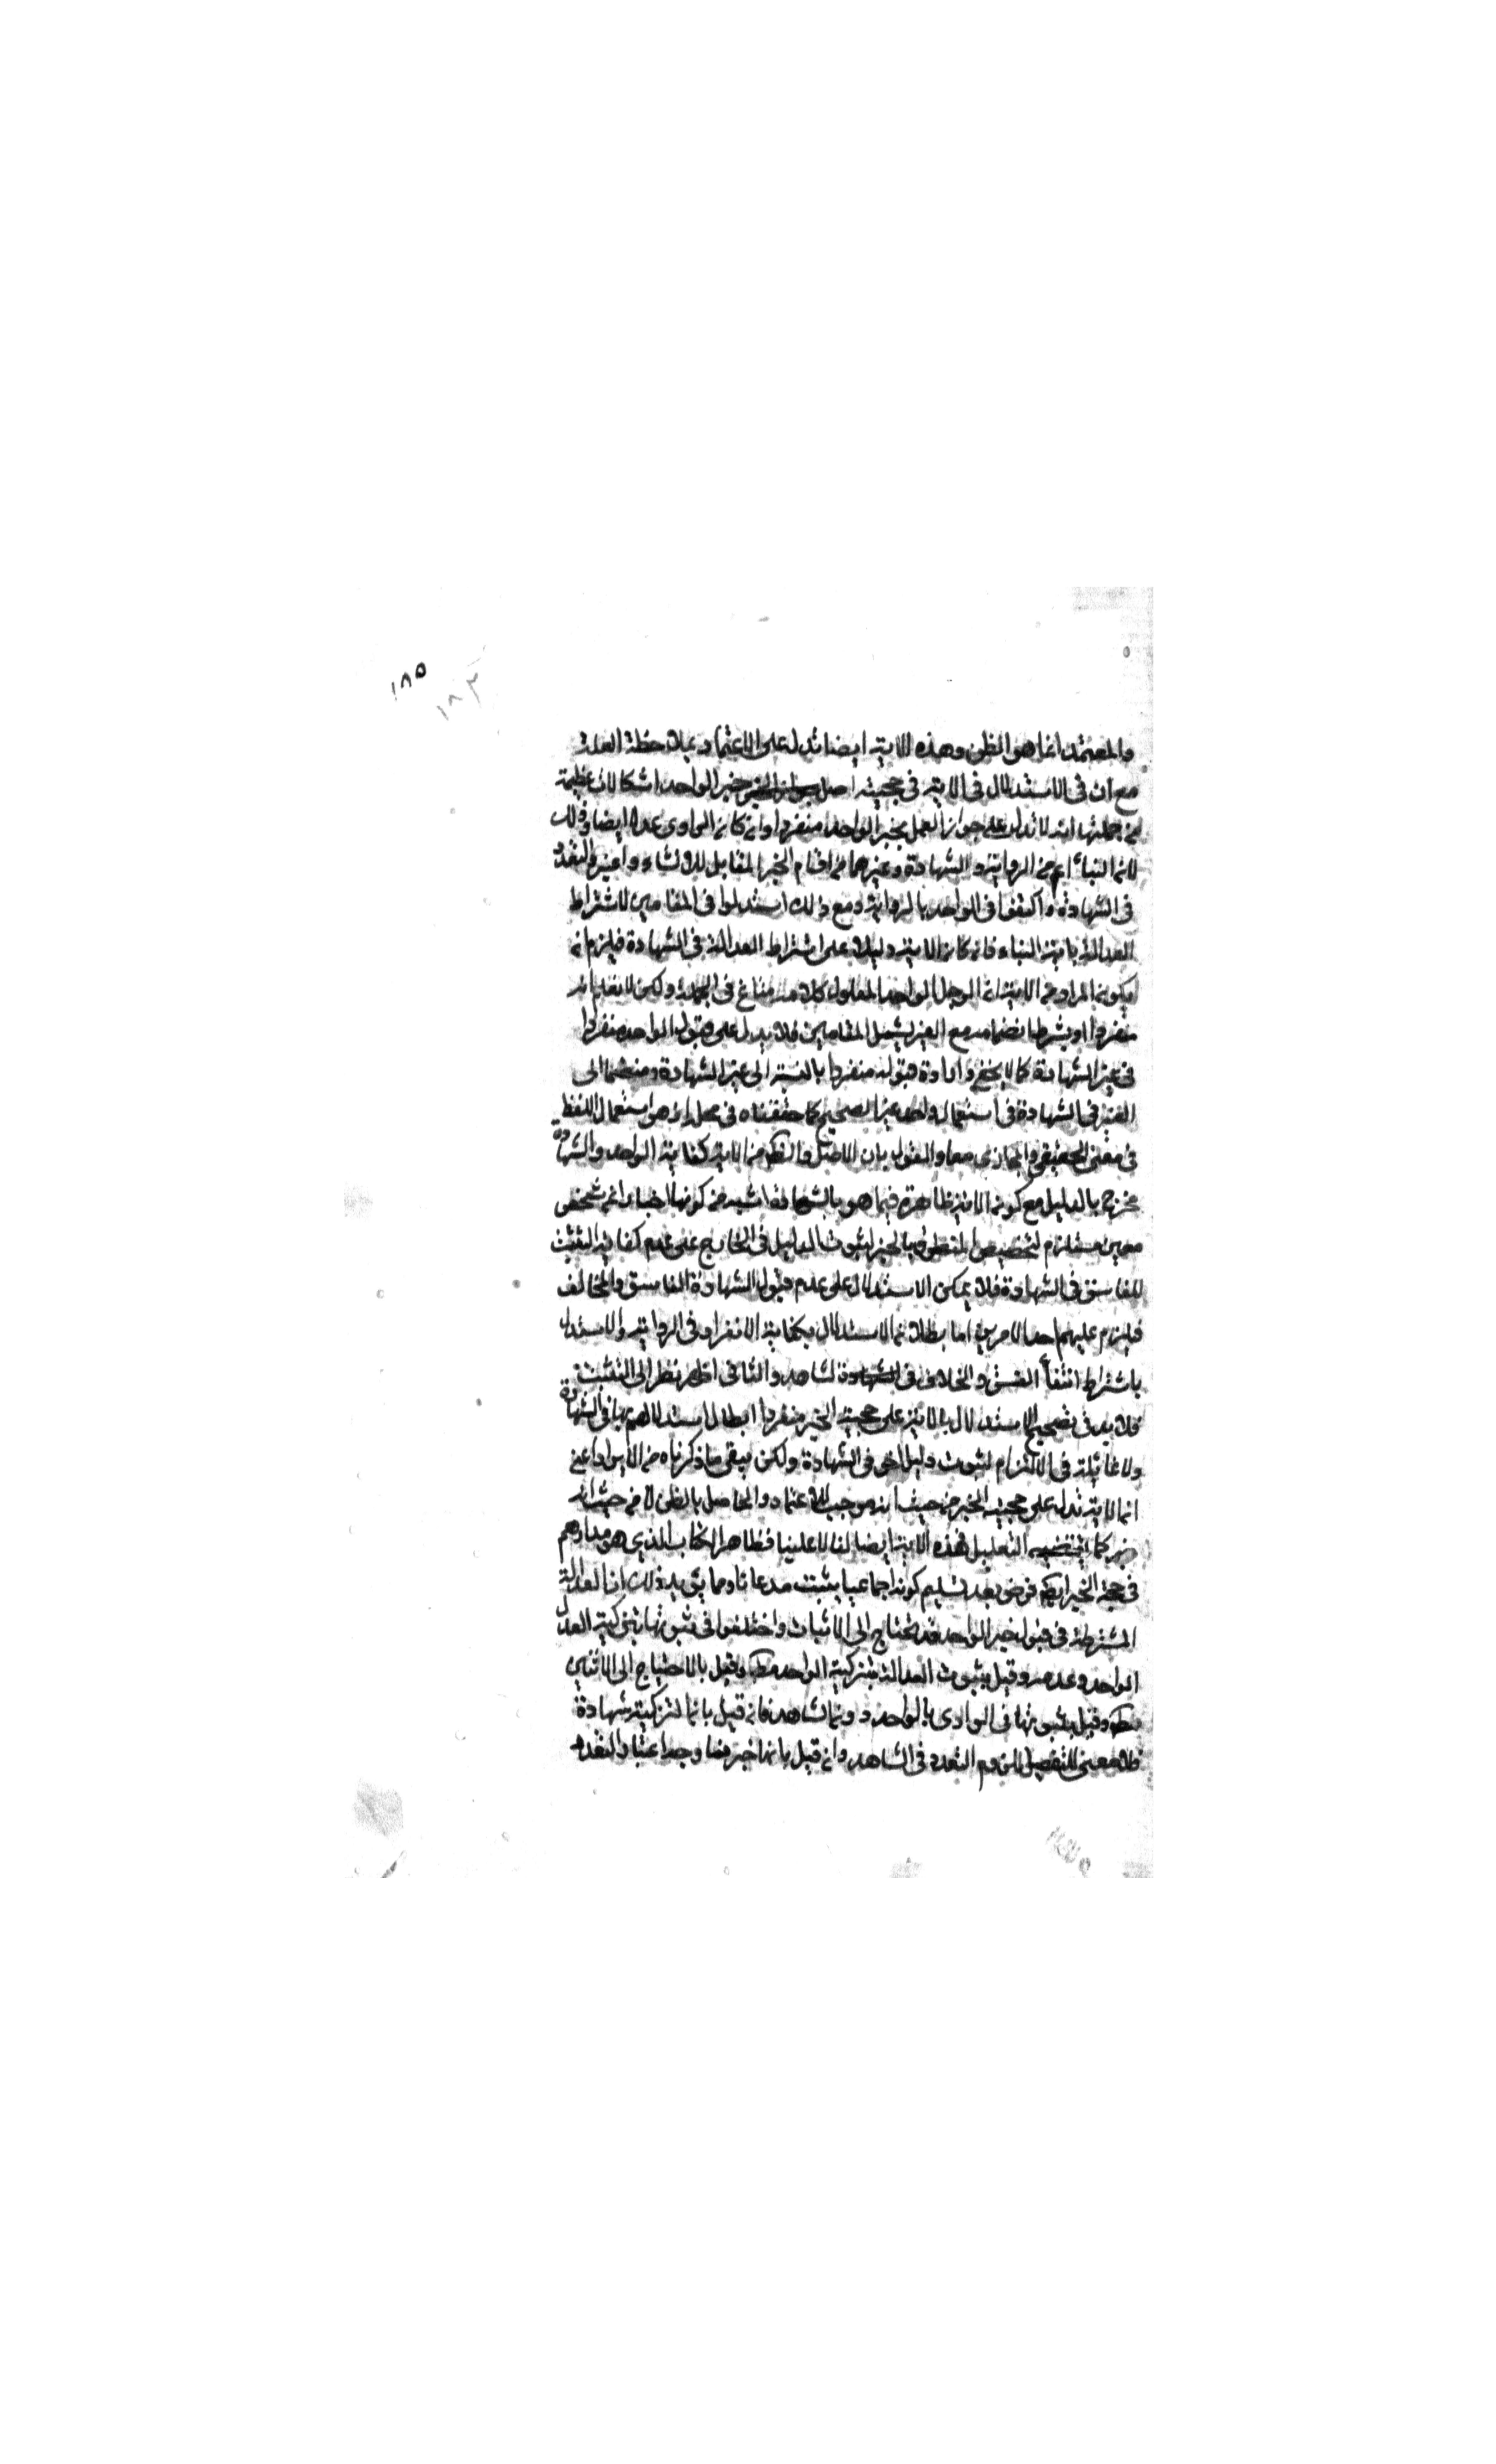 ١٨٥
١٨٣
والمعتمد انما هو الظن وهذه الاية ايضا تدل على الاعتماد بملاحظة العلة
مع ان فى الاستدلال فى الاية فى حجية اصل خبر الواحد اشكالات عظيمة
من جملتها انه لا تدل على جواز العمل بخبر الواحد منفردا وان كان الراوى عدلا ايضا وذلك
لان النباء اعم من الرواية والشهادة وغيرهما من اقسام الخبر المقابل للانشاء واعتبر التعدد
فى الشهادة واكتفوا فى الواحد بالرواية ومع ذلك استدلوا فى المقامين لاشتراط
العدالة باية النباء فان كان الاية دليلا على اشتراط العدالة فى الشهادة فيلزم ان
يكون المراد من الاية ان الرجل الواحد المعلول كلامه فى الجملة ولكن لا نعلم انه
منفردا او بشرط انضمامه مع الغير ليشمل المقامين فلا يدل على قبول الواحد منفردا
فى غير الشهادة كما لا يخفى وارادة قبوله منفردا بالنسبة الى غير الشهادة ومنضما الى
الغير فى الشهادة فى استعمال واحد غير صحيح كما حققناه فى محله اذ هو استعمال اللفظ
فى معنى الحقيقى والمجازى معا والقول بان الاصل والظ من الاية كفاية الواحد والشهادة
مخرج بالدليل مع كون الاية ظاهرة فيما هو بالشهادة اشبه من كونها اخبارا عن شخص
معين مستلزم لتخصيص المنطوق بالخبر لثبوت الدليل فى الخارج على عدم كفاية التثبت
للفاسق فى الشهادة فلا يمكن الاستدلال على عدم قبول الشهادة الفاسق والمخالف
فيلزم عليهم احد الامرين اما بطلان الاستدلال بكفاية الانفراد فى الرواية والاستدلال
باشتراط انتفاء الفسق والخلاف فى الشهادة لشاهد والثانى اظهر نظر الى التثبت
فلا بد فى تصحيح الاستدلال بالاية على حجية الخبر منفردا ابطال استدلالهم بها فى الشهادة
ولا غائلة فى الالتزام لثبوت دليل اخر فى الشهادة ولكن يبقى ما ذكرناه من الايراد اعنى
ان الاية تدل على حجية الخبر من حيث انه موجب للاعتماد والحاصل بالظن لا من حيث انه
خبر كما يقتضيه التعليل فهذه الاية ايضا لنا لا علينا فظاهر الكتاب الذى هو مدارهم
فى حجية الخبر ايكم فرض بعد تسليم كونه اجماعيا يثبت مدعانا ومما يؤيد ذلك ان العدالة
المشترطة فى قبول خبر الواحد قد تحتاج الى الاثبات واختلفوا فى ثبوتها بتزكية العدل
الواحد وعدمه وقيل بثبوت العدالة بتزكية الواحد مط وقيل بالاحتياج الى الاثنين
مط وقيل بثبوتها فى الراوى بالواحد دون الشاهد فان قيل بان التزكية شهادة
فلا معنى للتفصيل للزوم التعدد فى الشاهد وان قيل بانها خبر فما وجه اعتبار التعدد